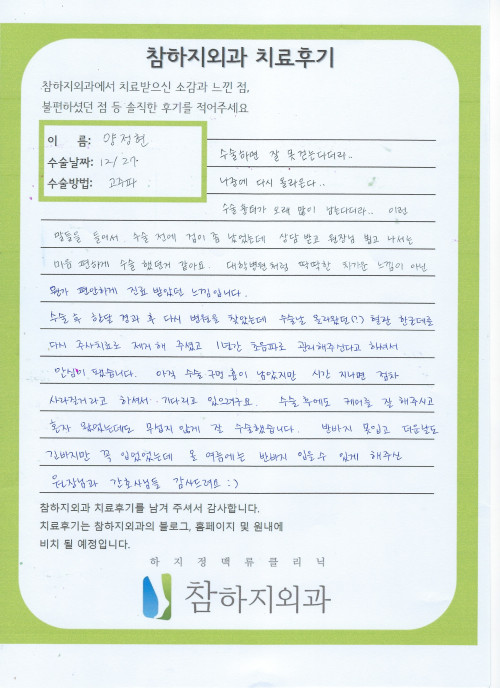 참하지외과 치료후기
참하지외과에서 치료받으신 소감과 느낀 점,
불편하셨던 점 등 솔직한 후기를 적어주세요
이 름: 양정현
수술날짜: 12/27
수술방법: 고주파
수술하면 잘 못걷는다더라..
나중에 다시 올라온다..
수술 흉터가 오래 많이 남는다더라.. 이런
말들을 들어서 수술 전에 겁이 좀 났었는데 상담 받고 원장님 뵙고 나서는
마음 편하게 수술 했던거 같아요. 대학병원처럼 딱딱한 차가운 느낌이 아닌
뭔가 편안하게 진료 받았던 느낌입니다.
수술 후 한달 경과 후 다시 병원을 찾았는데 수술날 올라왔던(?) 혈관 한군데도
다시 주사치료로 제거해 주셨고 1년간 초음파로 관리해주신다고 하셔서
안심이 됐습니다. 아직 수술 구멍 흉이 남았지만 시간 지나면 점차
사라질거라고 하셔서 기다리고 있으려구요. 수술 후에도 케어를 잘 해주시고
혼자 왔었는데도 무섭지 않게 잘 수술했습니다. 반바지 못입고 더운날도
긴바지만 꼭 입었었는데 올 여름에는 반바지 입을수 있게 해주신
원장님과 간호사님들 감사드려요 :)
참하지외과 치료후기를 남겨 주셔서 감사합니다.
치료후기는 참하지외과의 블로그, 홈페이지 및 원내에
비치 될 예정입니다.
하지정맥류클리닉
참하지외과